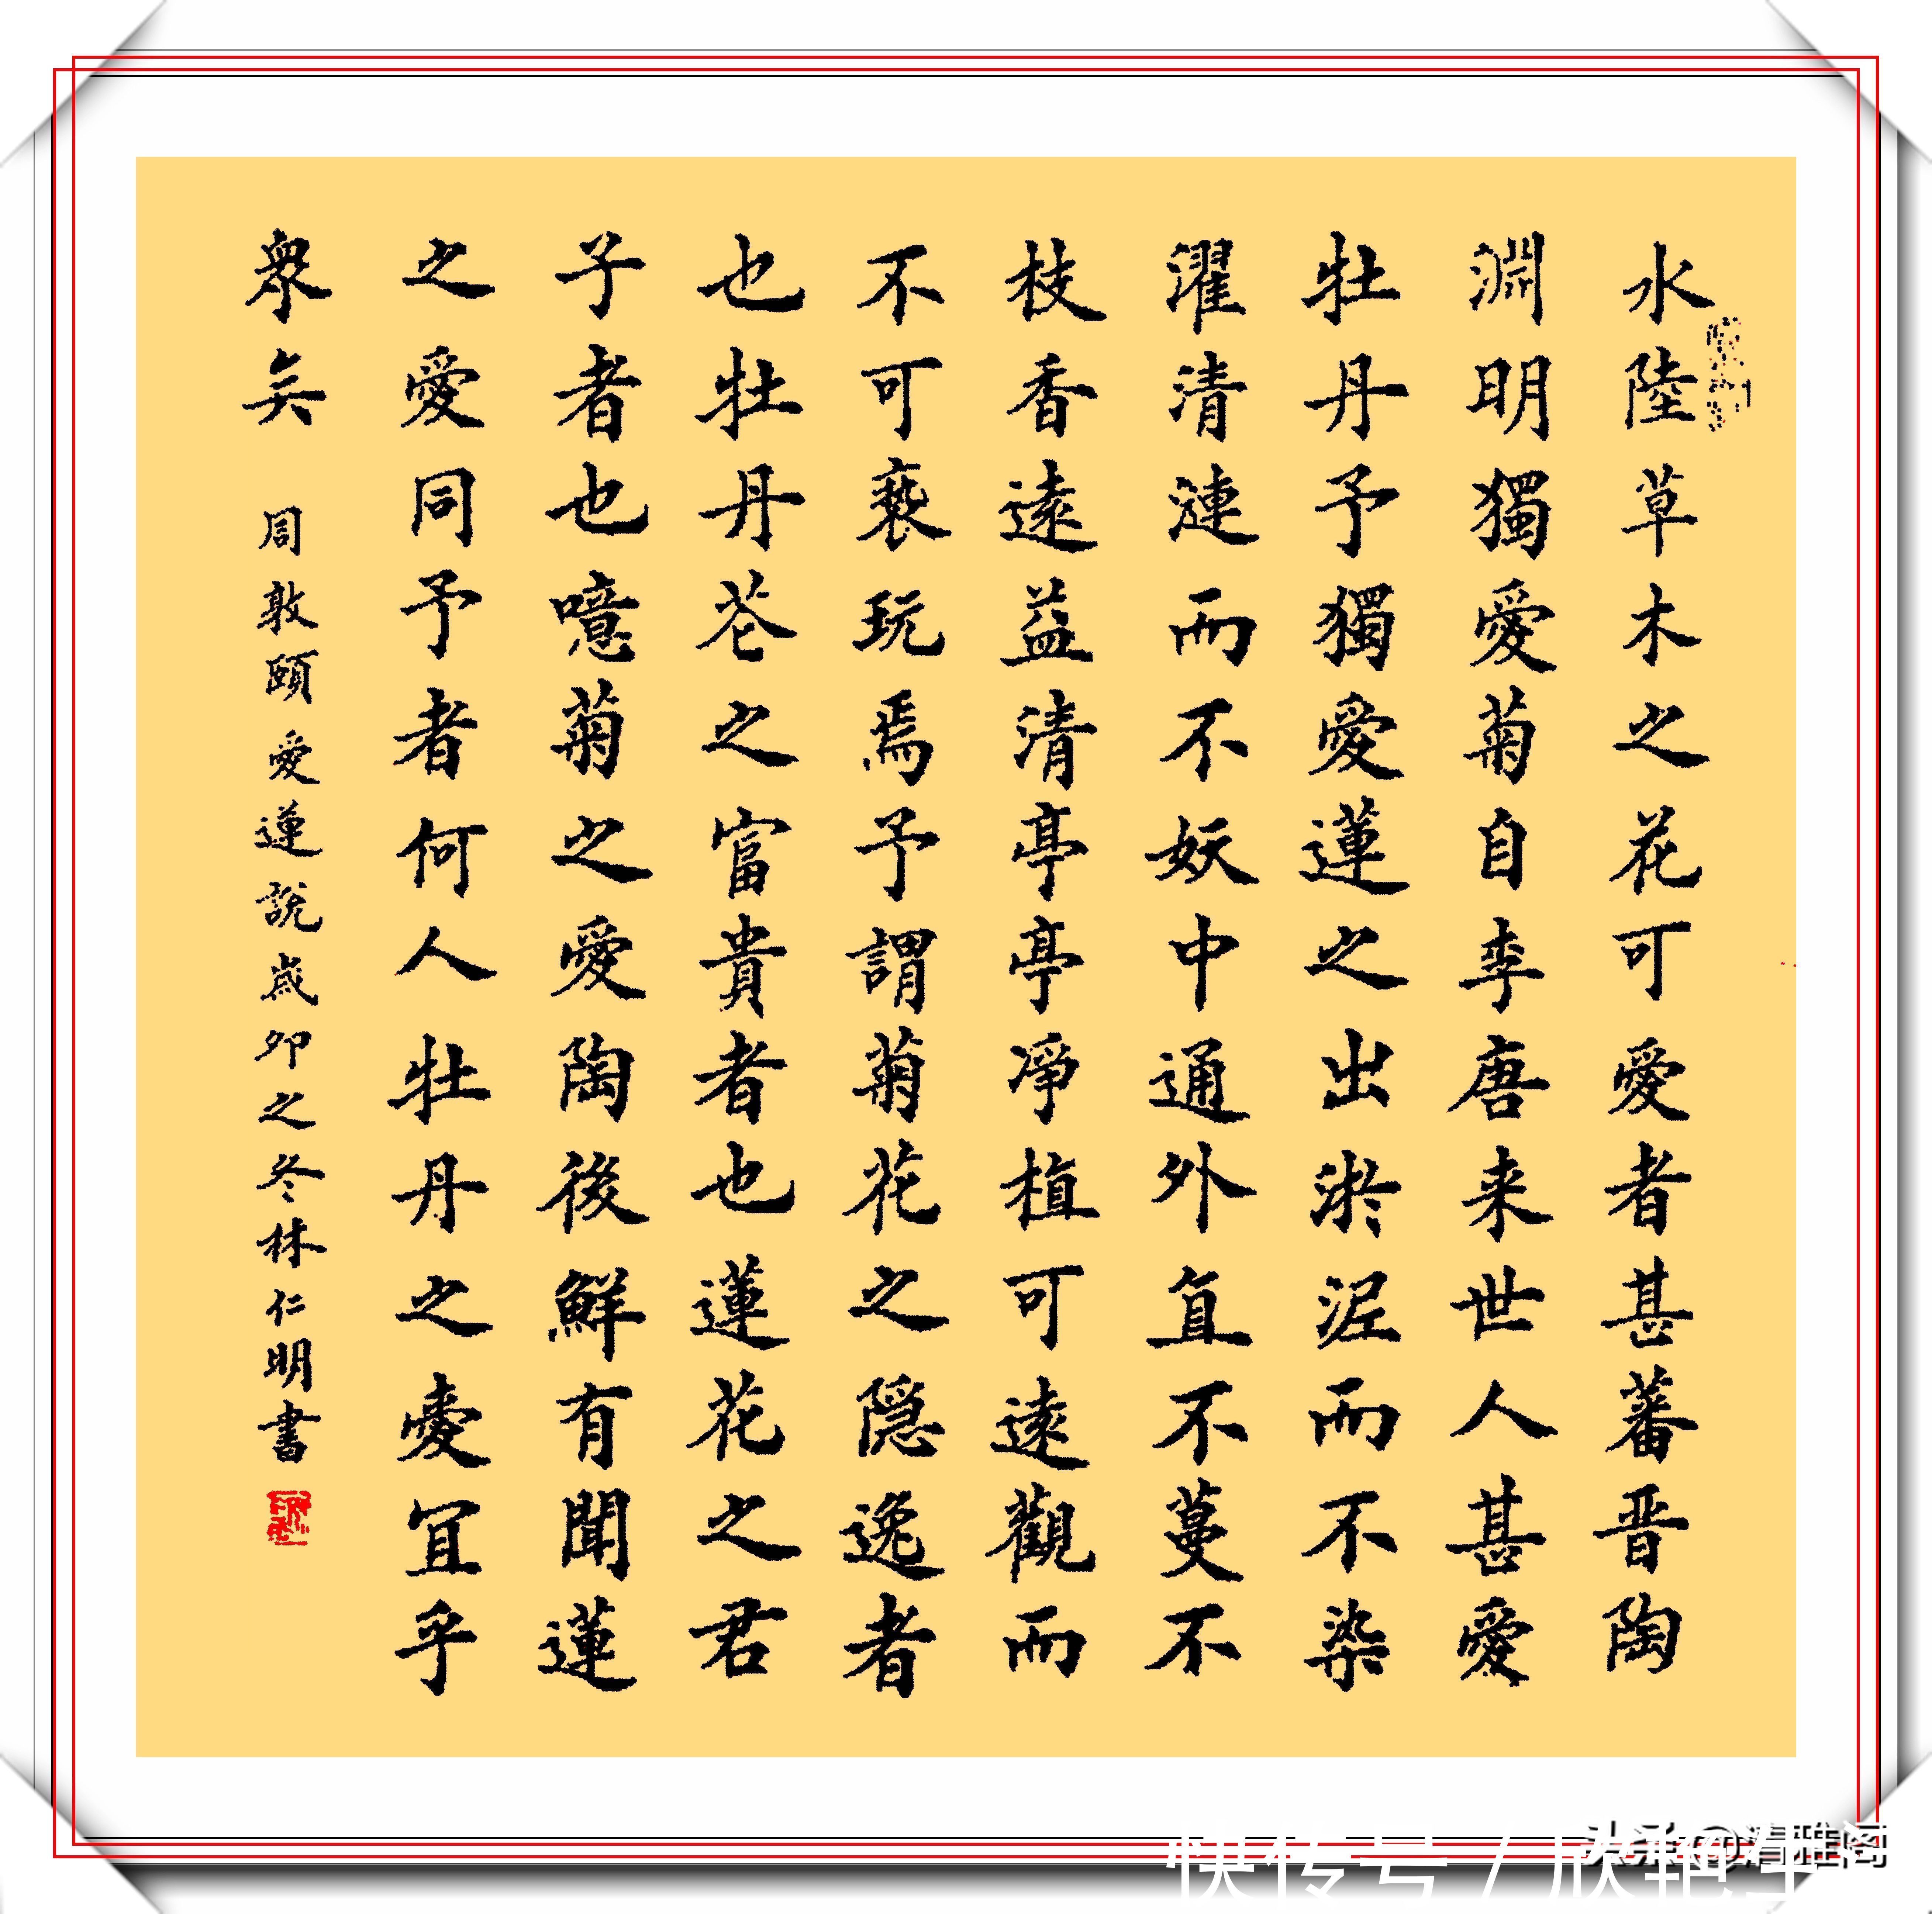 水陸草木之花可愛者甚蕃晋陶
淵明獨愛菊自李唐来世人甚愛
牡丹予獨愛蓮之出淤泥而不染
濯清漣而不妖中通外直不蔓不
枝香遠益清亭亭淨植可遠觀而
不可褻玩焉予謂菊花之隱逸者
也牡丹花之富貴者也蓮花之君
子者也噫菊之愛陶後鮮有聞蓮
之愛同予者何人牡丹之愛宜乎
衆矣
周敦頤愛蓮說歲卯之冬林仁明書
头条@清雅阁
快传号/欣艳